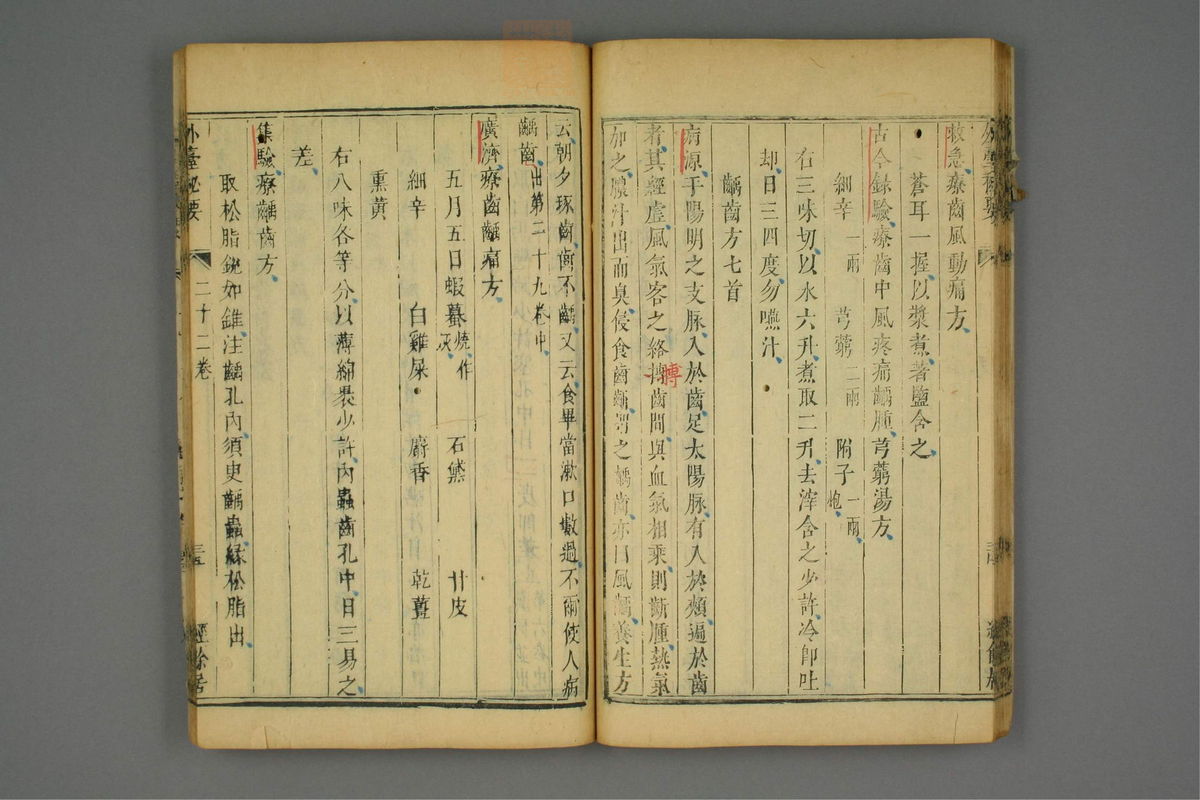 救急療齒風動痛方
蒼耳一握以漿煮著鹽含之
古今錄驗療齒中風疼痛齲腫芎藭湯方
細辛一兩 芎藭二兩 附子一兩炮
右三味切以水六升煮取二升去滓含之少許冷即吐
却日三四度勿嚥汁
齲齒方七首
病源手陽明之支脉入於齒足太陽脉有入於頰遍於齒
者其經虛風氣客之絡摶齒間與血氣相乘則齗腫熱氣
加之膿汁出而臭侵食齒齗謂之齲齒亦曰風齲養生方
云朝夕琢齒齒不齲又云食畢當漱口數過不爾使人病
齲齒出第二十九卷中
廣濟療齒齲痛方
五月五日蝦蟇燒作灰 石黛 甘皮
細辛 白雞屎 麝香 乾薑
熏黃
右八味各等分以薄綿裹少許內蟲齒孔中日三易之
差
集驗療齲齒方
取松脂銳如錐注齲孔內須臾齲蟲緣松脂出
外臺秘要 二十二卷 三五 經餘居